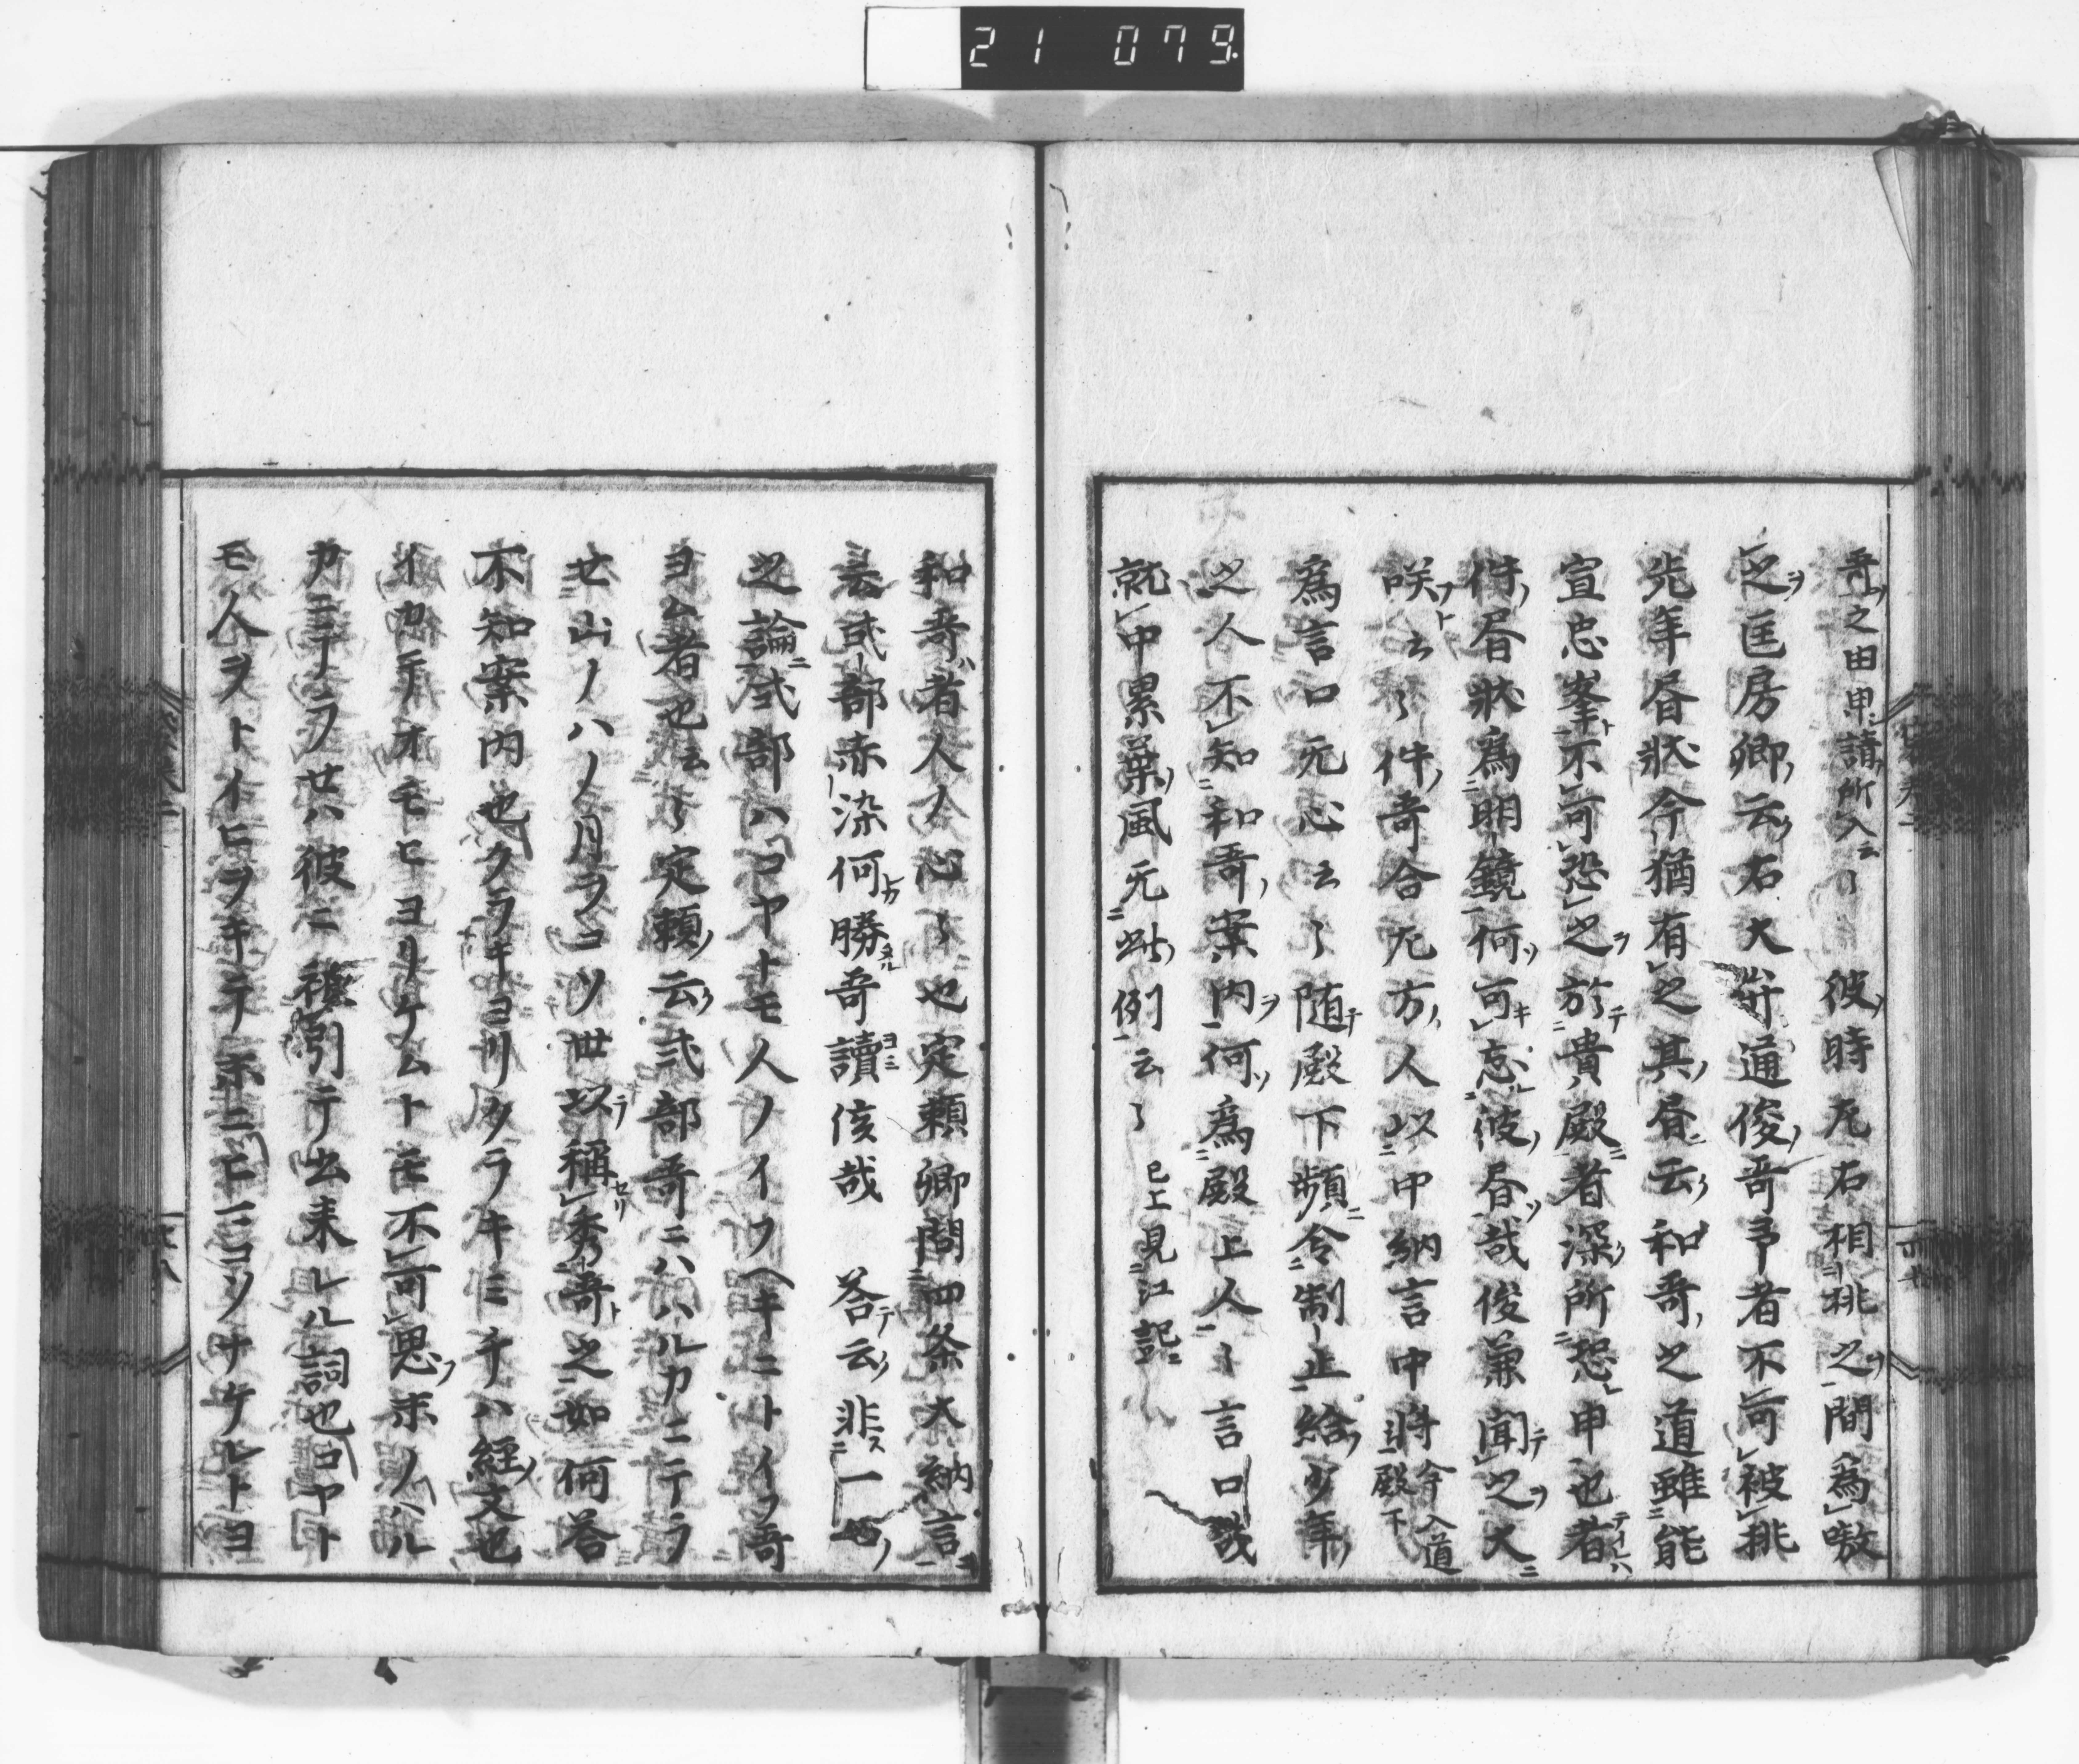 21 079
哥之由申請所入云〻彼時左右相挑之間為嗷
之匡房卿云右大弁通俊哥予者不可被挑
先年昼状今猶有之其昼云和哥之道雖能
宣忠峯不可恐之於貴殿者深所恐申也者
件昼状為明鏡何可忘彼昼哉俊兼聞之大
咲云〻件哥合左方人以中納言中将今入道殿下
為言口无心云〻随殿下頻令制止給少年
之人不知和哥案内何為殿上人〻言口哉
就中累葉風无此例云〻已上見江記
和哥者人ノ心〻也定頼卿問四条大納言
云式部赤染何勝哥讀侅哉 答云非一口
之論式部ハコヤトモ人ノイフヘキニトイフ哥
ヨム者也云〻定頼云式部哥ニハハルカニテラ
せ山ノハノ月ヲコソ世以稱秀哥之如何答
不知案内也クラキヨリクラキミチハ経文也
イカテオモヒヨリケムトモ不可思末ノハル
カニテラせハ彼ニ被引テ出来レル詞也コヤト
モ人ヲトイヒヲキテ末ニヒマコソナケレトヨ